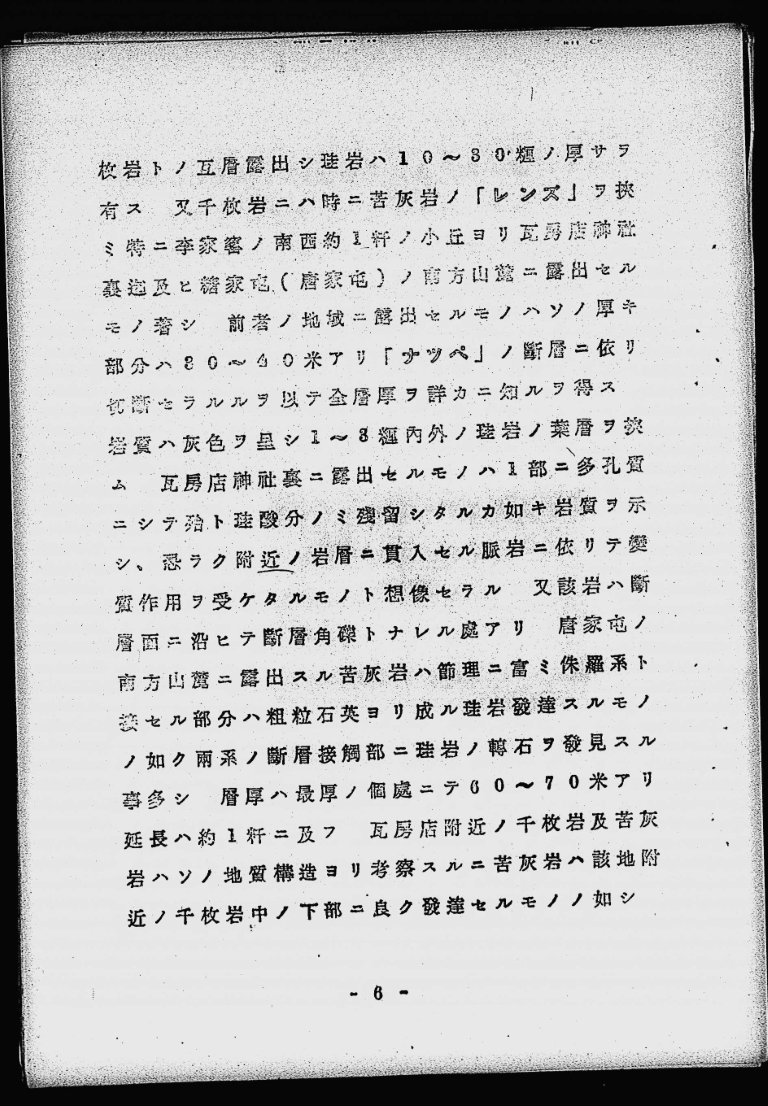 枚岩トノ互層露出シ珪岩ハ10～30糎ノ厚サヲ
有ス　又千枚岩ニハ時ニ苦灰岩ノ「レンズ」ヲ挾
ミ特ニ李家窰ノ南西約1粁ノ小丘ヨリ瓦房店神社
裏迄及ヒ糖家屯(唐家屯)ノ南方山麓ニ露出セル
モノ著シ　前者ノ地域ニ露出セルモノハソノ厚キ
部分ハ30～40米アリ「ナツペ」ノ斷層ニ依リ
切斷セラルルヲ以テ全層厚ヲ詳カニ知ルヲ得ス
岩質ハ灰色ヲ呈シ1～3糎內外ノ珪岩ノ葉層ヲ挾
ム　瓦房店神社裏ニ露出セルモノハ1部ニ多孔質
ニシテ殆ト珪酸分ノミ殘留シタルカ如キ岩質ヲ示
シ、恐ラク附近ノ岩層ニ貫入セル脈岩ニ依リテ變
質作用ヲ受ケタルモノト想像セラル　又該岩ハ斷
層面ニ沿ヒテ斷層角礫トナレル處アリ　唐家屯ノ
南方山麓ニ露出スル苦灰岩ハ節理ニ富ミ侏羅系ト
接セル部分ハ粗粒石英ヨリ成ル珪岩發達スルモノ
ノ如ク兩系ノ斷層接觸部ニ珪岩ノ轉石ヲ發見スル
事多シ　層厚ハ最厚ノ個處ニテ60～70米アリ
延長ハ約1粁ニ及フ　瓦房店附近ノ千枚岩及苦灰
岩ハソノ地質構造ヨリ考察スルニ苦灰岩ハ該地附
近ノ千枚岩中ノ下部ニ良ク發達セルモノノ如シ
- 6 -